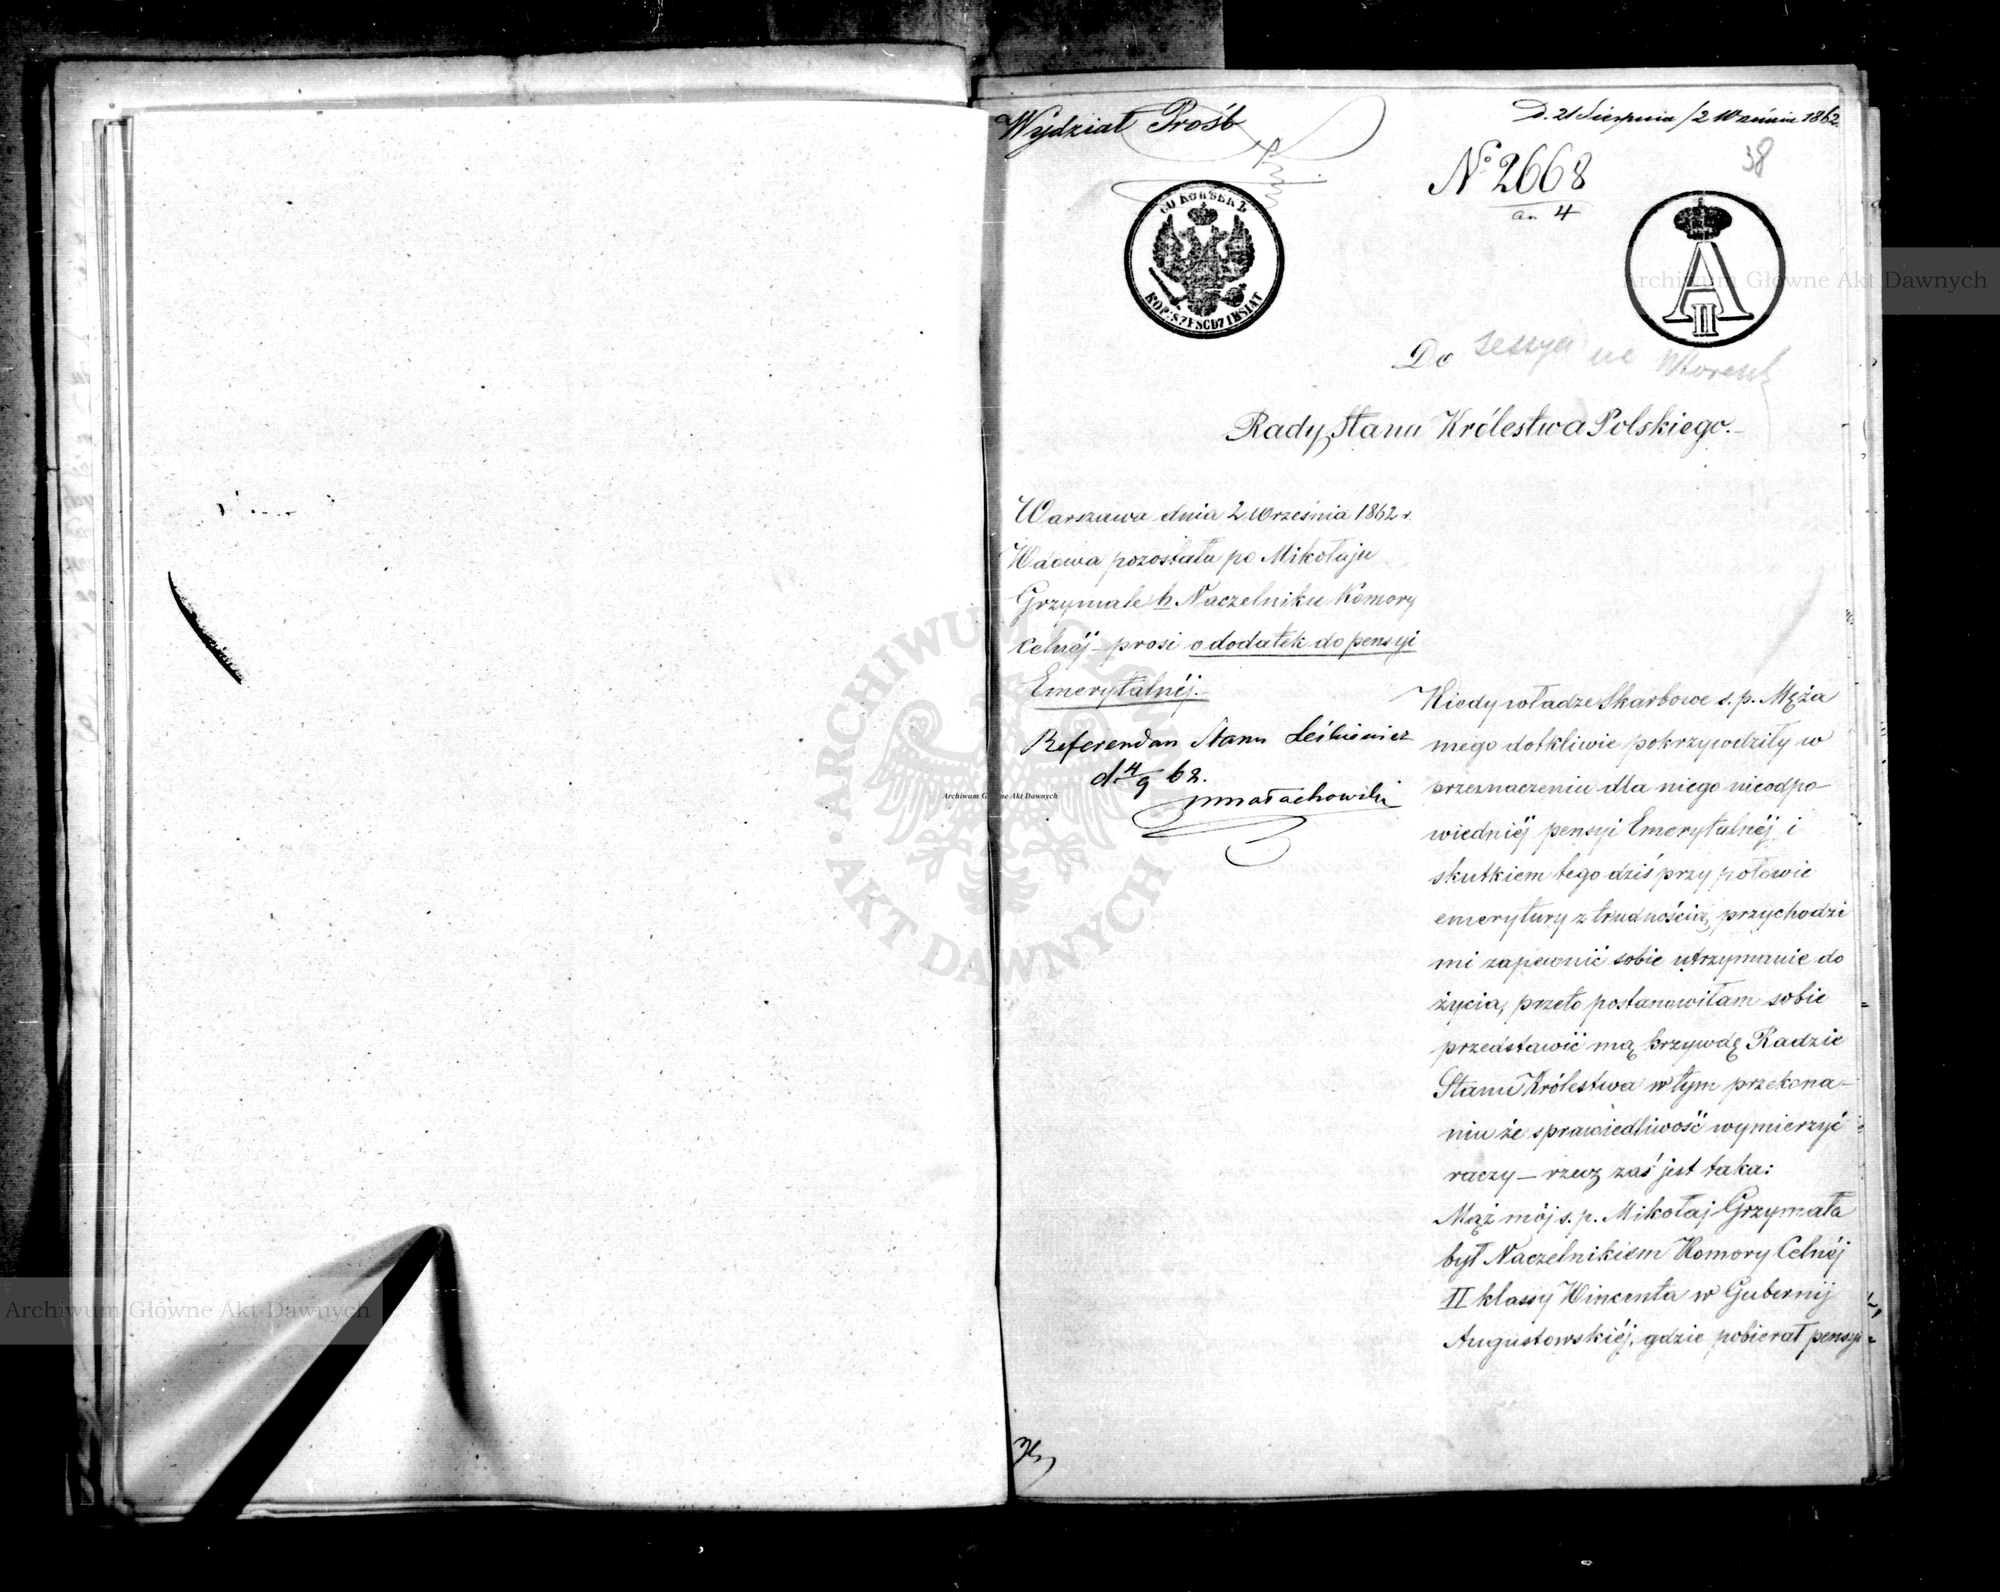 Wydział Próśb
D. 21 Sierpnia / 2 Września 1862.
38
№ 2668
an 4
60 КОПѢЕКЪ
Do
sessya na Wtorek
Rady Stanu Królestwa Polskiego.
Warszawa dnia 2 Września 1862 r.
Wdowa pozostała po Mikołaju
Grzymale b Naczelniku Komory
Celnéj – prosi o dodatek do pensyi
Emerytalnéj.
Referendarz Stanu
d. 4/9 62.
Małachowski
Kiedy władze Skarbowe ś. p. Męża
mego dotkliwie pokrzywdziły w
przeznaczeniu dla niego nieodpo-
wiedniéj pensyi Emerytalnéj i
skutkiem tego dziś przy połowie
emerytury z trudnością przychodzi
mi zapewnić sobie utrzymanie do
życia, przeto postanowiłam sobie
przedstawić mą krzywdę Radzie
Stanu Królestwa w tym przekona-
niu że sprawiedliwość wymierzyć
raczy – rzecz zaś jest taka:
Mąż mój ś. p. Mikołaj Grzymała
był Naczelnikiem Komory Celnéj
II klassy Wincenta w Gubernij
Augustowskiéj, gdzie pobierał pensyi
A II
Archiwum Główne Akt Dawnych
Archiwum Główne Akt Dawnych
Archiwum Główne Akt Dawnych
ARCHIWUM GŁÓWNE · AKT DAWNYCH ·